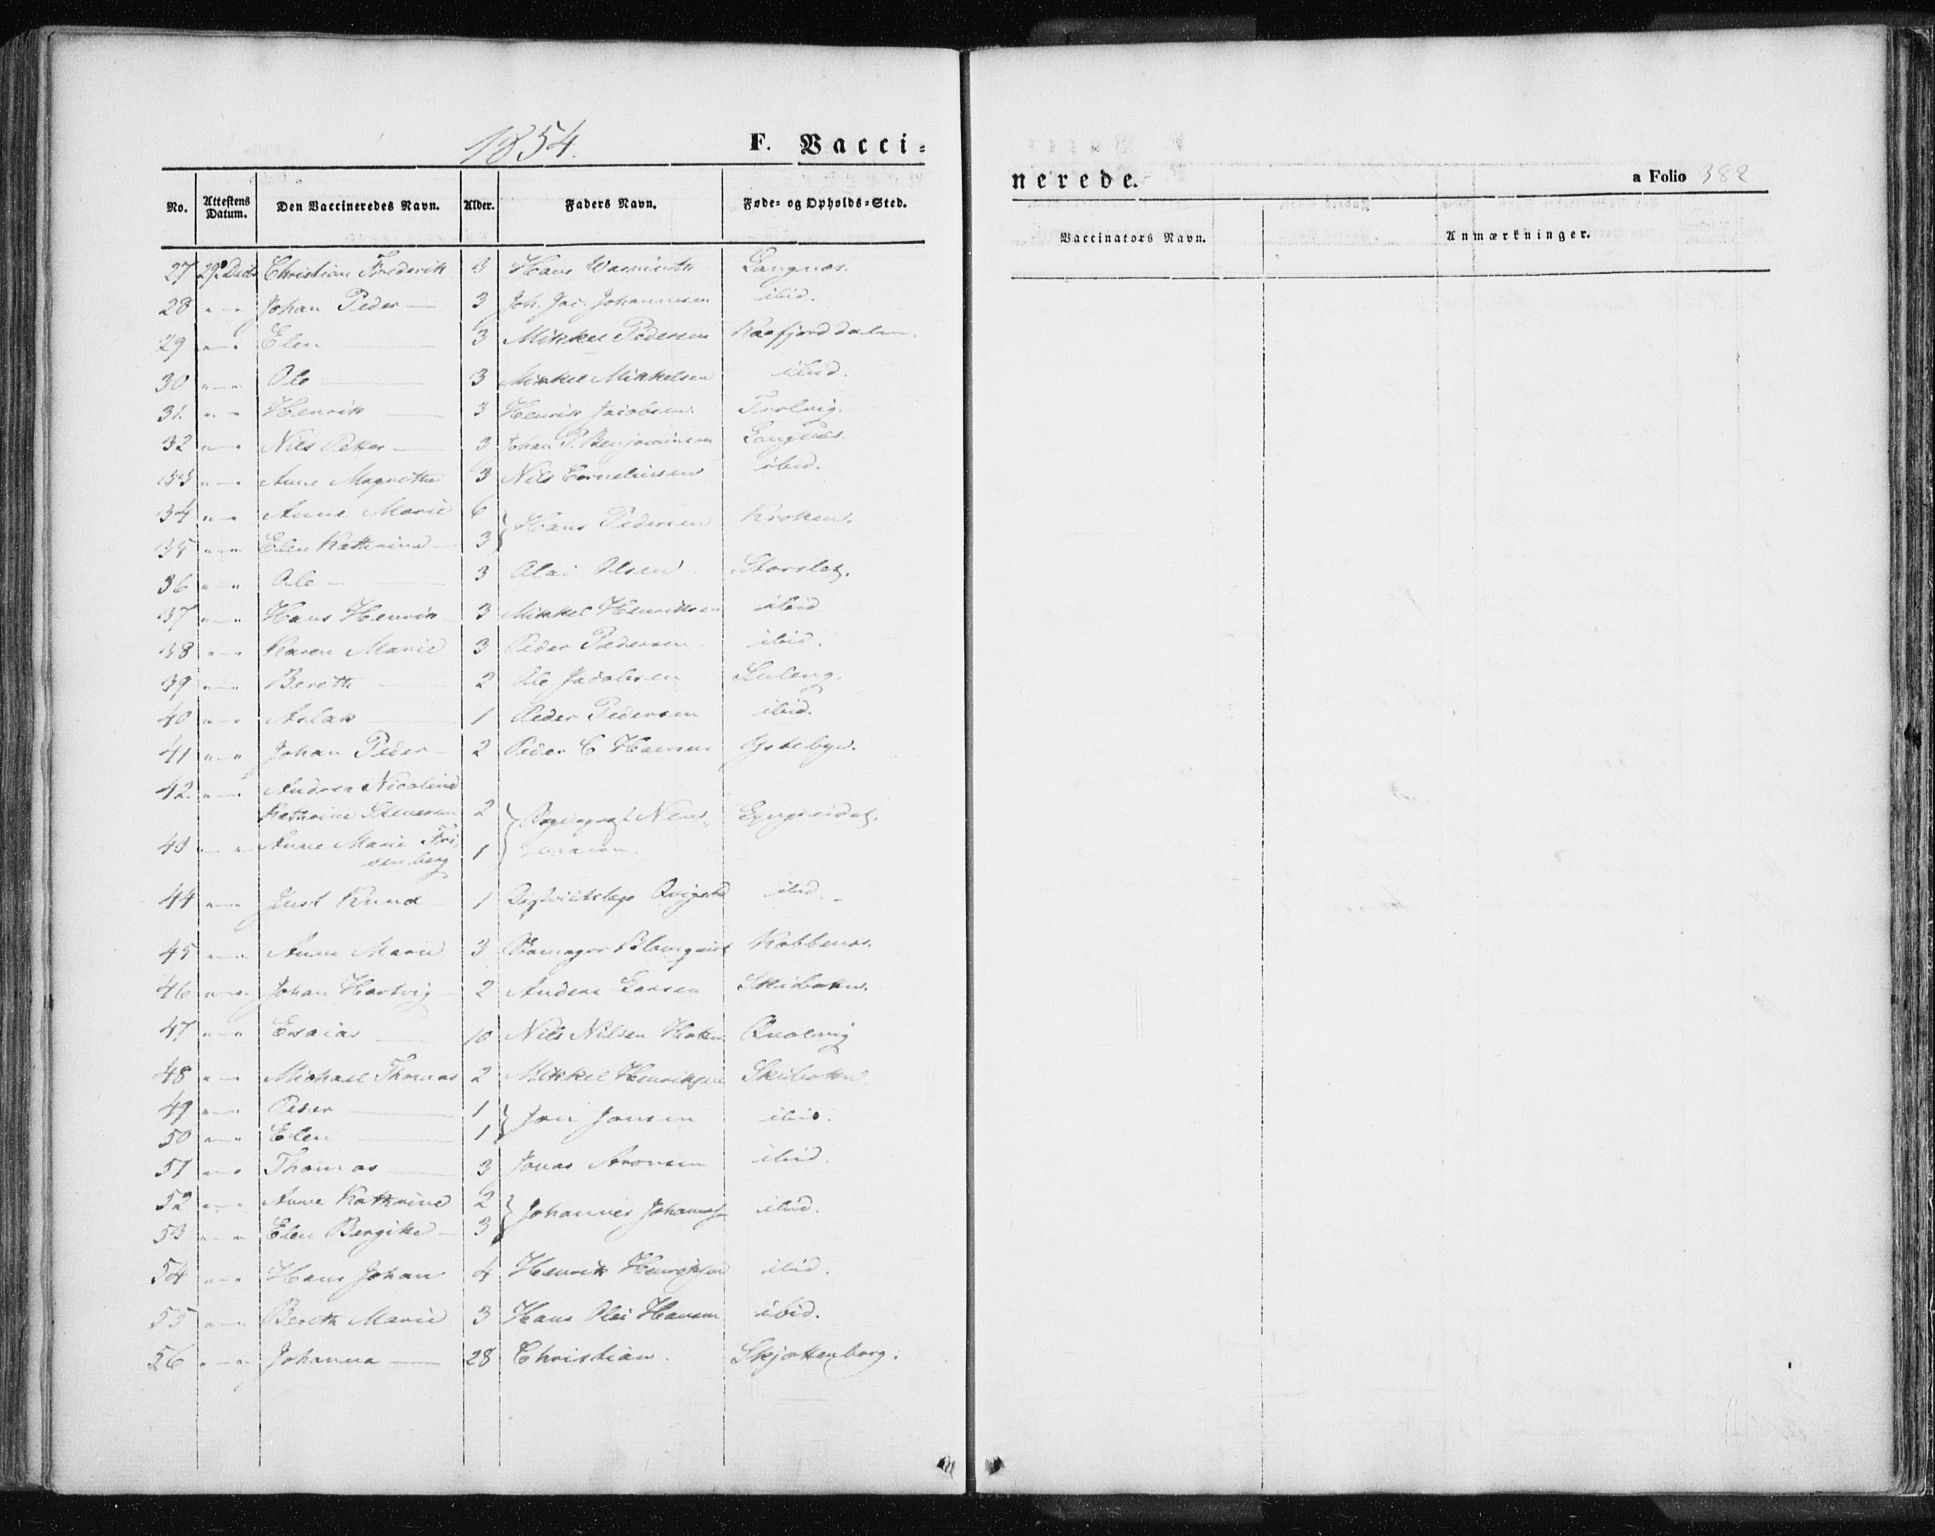 1854.
F. Vacci-
nerede.
a Folio 388
No. Attestens Datum. Den Vaccineredes Navn. Alder. Faders Navn. Føde- og Opholds-Sted.
Vaccinators Navn. Anmærkninger.
27 29 Christian Frederik 3 Hans Langnæs.
28 " — " Johan Peder — 3 Joh. Johannesen ibid.
29 " — " Elen — 3 Mikkel Pedersen Kaafjorddalen.
30 " — " Ole — 3 Mikkel Mikkelsen ibid.
31. " — " Henrik — 3 Henrik Jacobsen.
32 " — " Nils Petter — 3 Johan P. Benjaminsen Langnæs.
33 " — " Anne Magrethe 3 Nils Corneliussen ibid.
34 " — " Anne Marie 6 } Hans Pedersen Kroken.
35 " — " Elen Kathrine — 3
36 " — " Ole — 3 Olai Olsen Storslet.
37 " — " Hans Henrik 3 Mikkel Henriksen ibid
38 " — " Karen Marie 3 Peder Pedersen ibid.
39 " — " Bereth — 2 Ole Jacobsen
40 " — " Aslak — 1 Peder Pedersen ibid.
41 " — " Johan Peder — 2 Peder C Hansen
42. " — " Andrea Nicoline
Kathrine 2 }
43 " — " Anne Marie 1
44 " — " Just Knud — 1 ibid.
45 " — " Anne Marie 3 Blomqvist
46 " — " Johan Hartvig — 2 Anders Larsen Skibotten.
47 " — " Esaias — 10 Nils Nilsen
48 " — " Michael Thomas 2 Mikkel Henriksen Skibotten
49 " — " Peder — 1 } Jon Jonsen ibid.
50 " — " Elen — 1
51 " — " Thomas — 3 Jonas Aronsen ibid.
52 " — " Anne Kathrine 2 } Johannes ibid.
53 " — " Elen Bergithe — 3
54 " — " Hans Johan 4 Henrik Henriksen ibid.
55 " — " Bereth Marie 3 Hans Olai Hansen ibid.
56 " — " Johanna — 28 Christian.